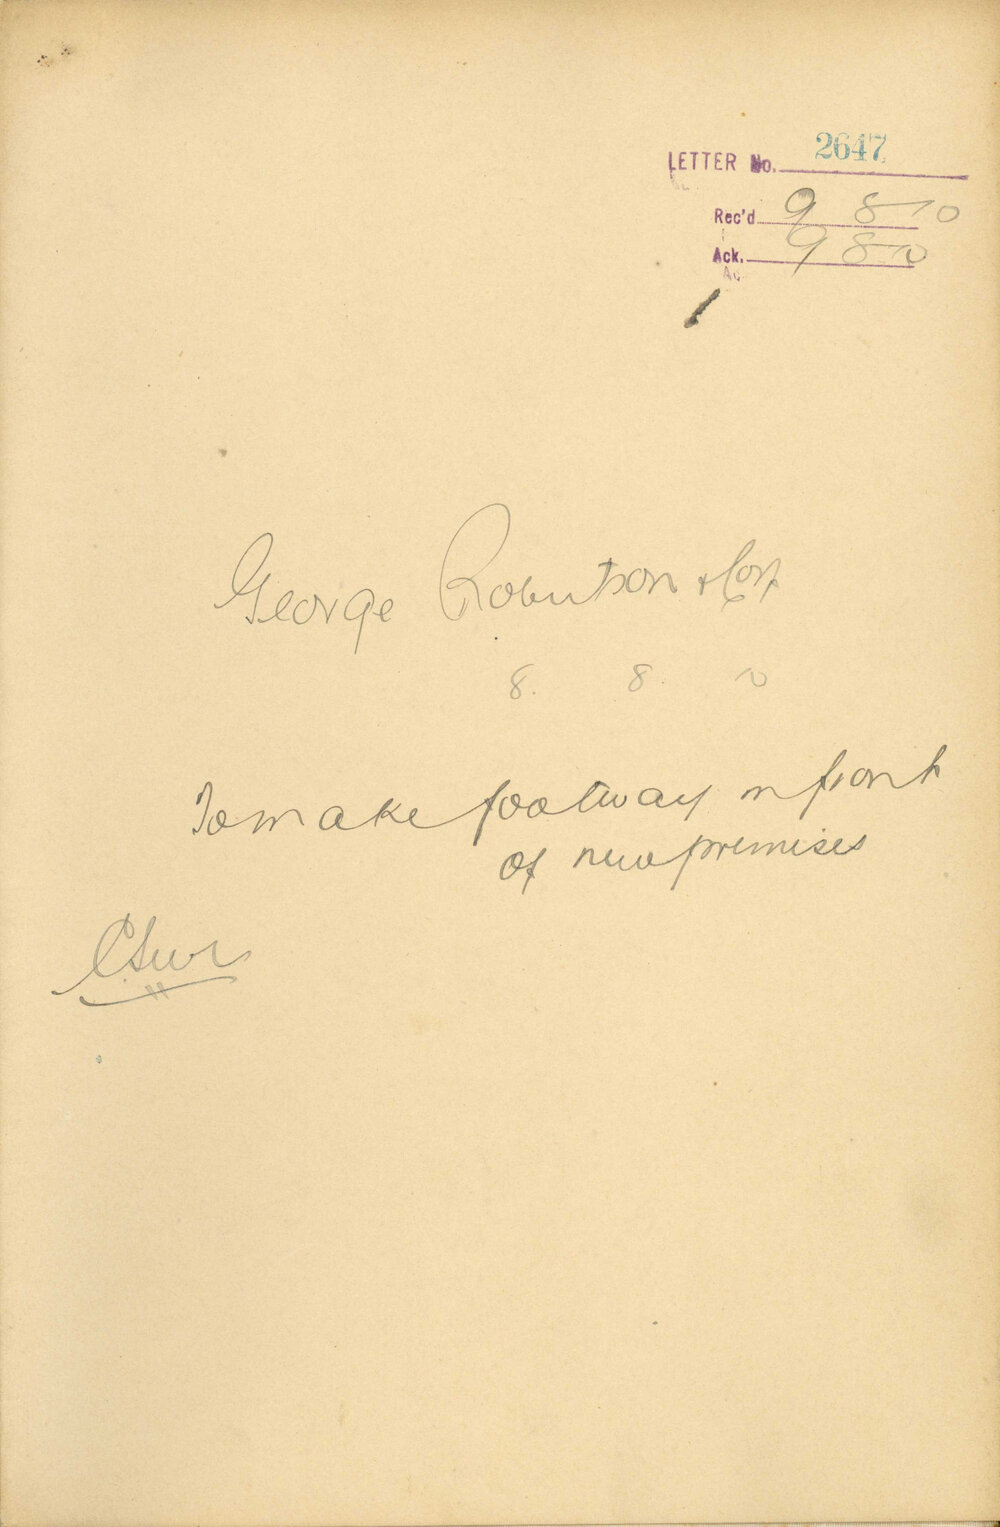 LETTER No. 2647
Rec'd 9 8 10
Ack. 9 8 10
George Robertson & Coy
8. 8. 10
To make footway in front
of new premises